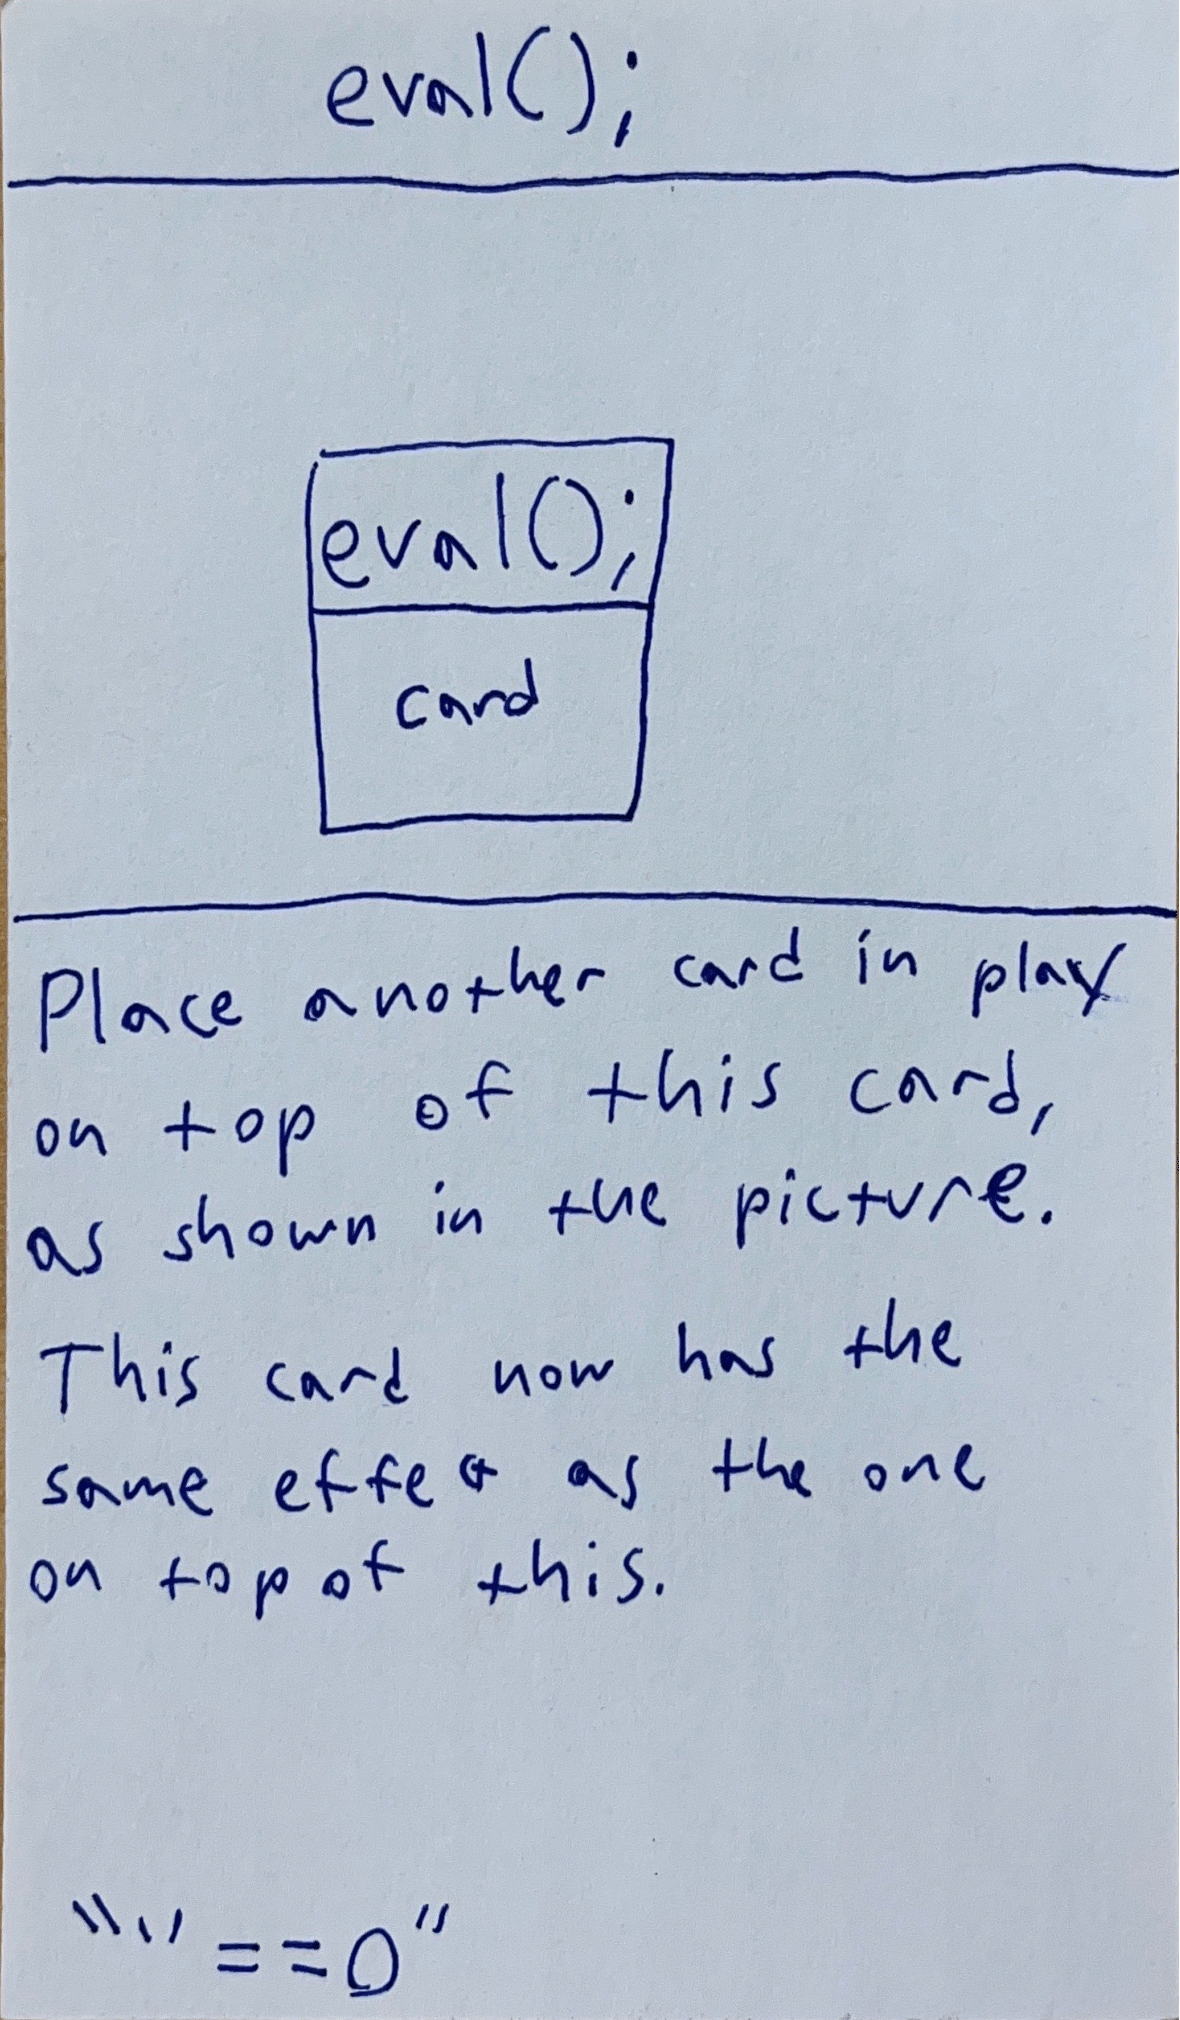 eval();
eval();
card
Place another card in play
on top of this card,
as shown in the picture.
This card now has the
same effect as the one
on top of this.
"''==0"